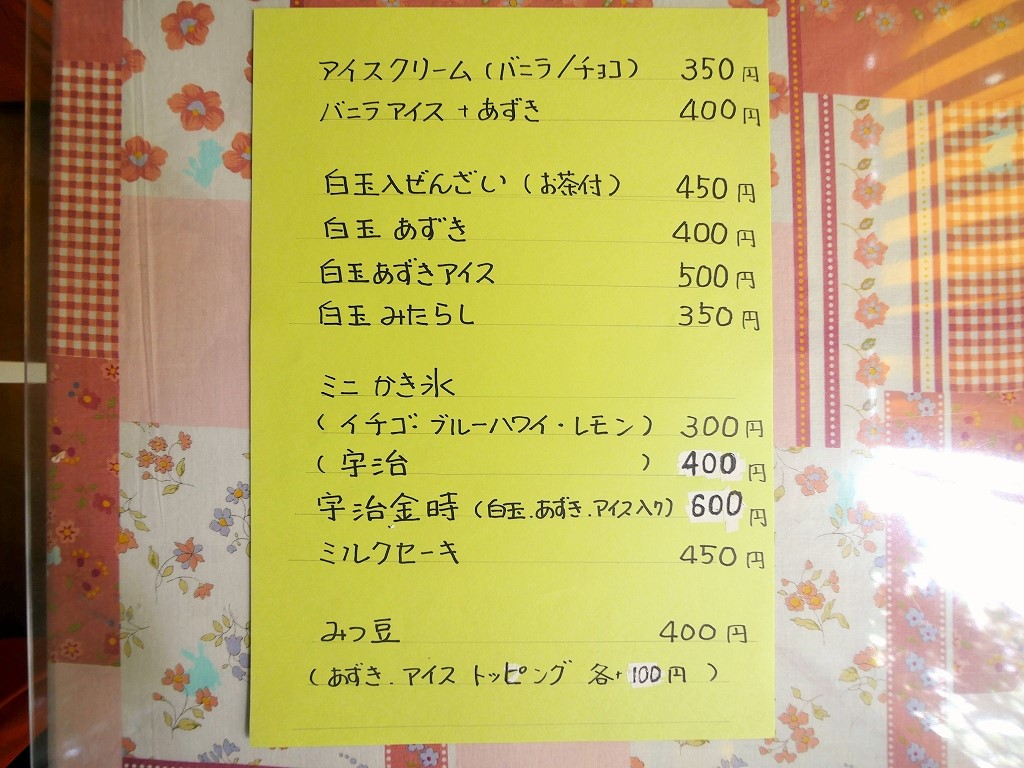 アイスクリーム（バニラ/チョコ） 350円
バニラアイス＋あずき 400円
白玉入ぜんざい（お茶付） 450円
白玉 あずき 400円
白玉あずきアイス 500円
白玉 みたらし 350円
ミニ かき氷
（イチゴ・ブルーハワイ・レモン） 300円
（宇治 ） 400円
宇治金時（白玉.あずき.アイス入り） 600円
ミルクセーキ 450円
みつ豆 400円
（あずき.アイス トッピング 各+100円）